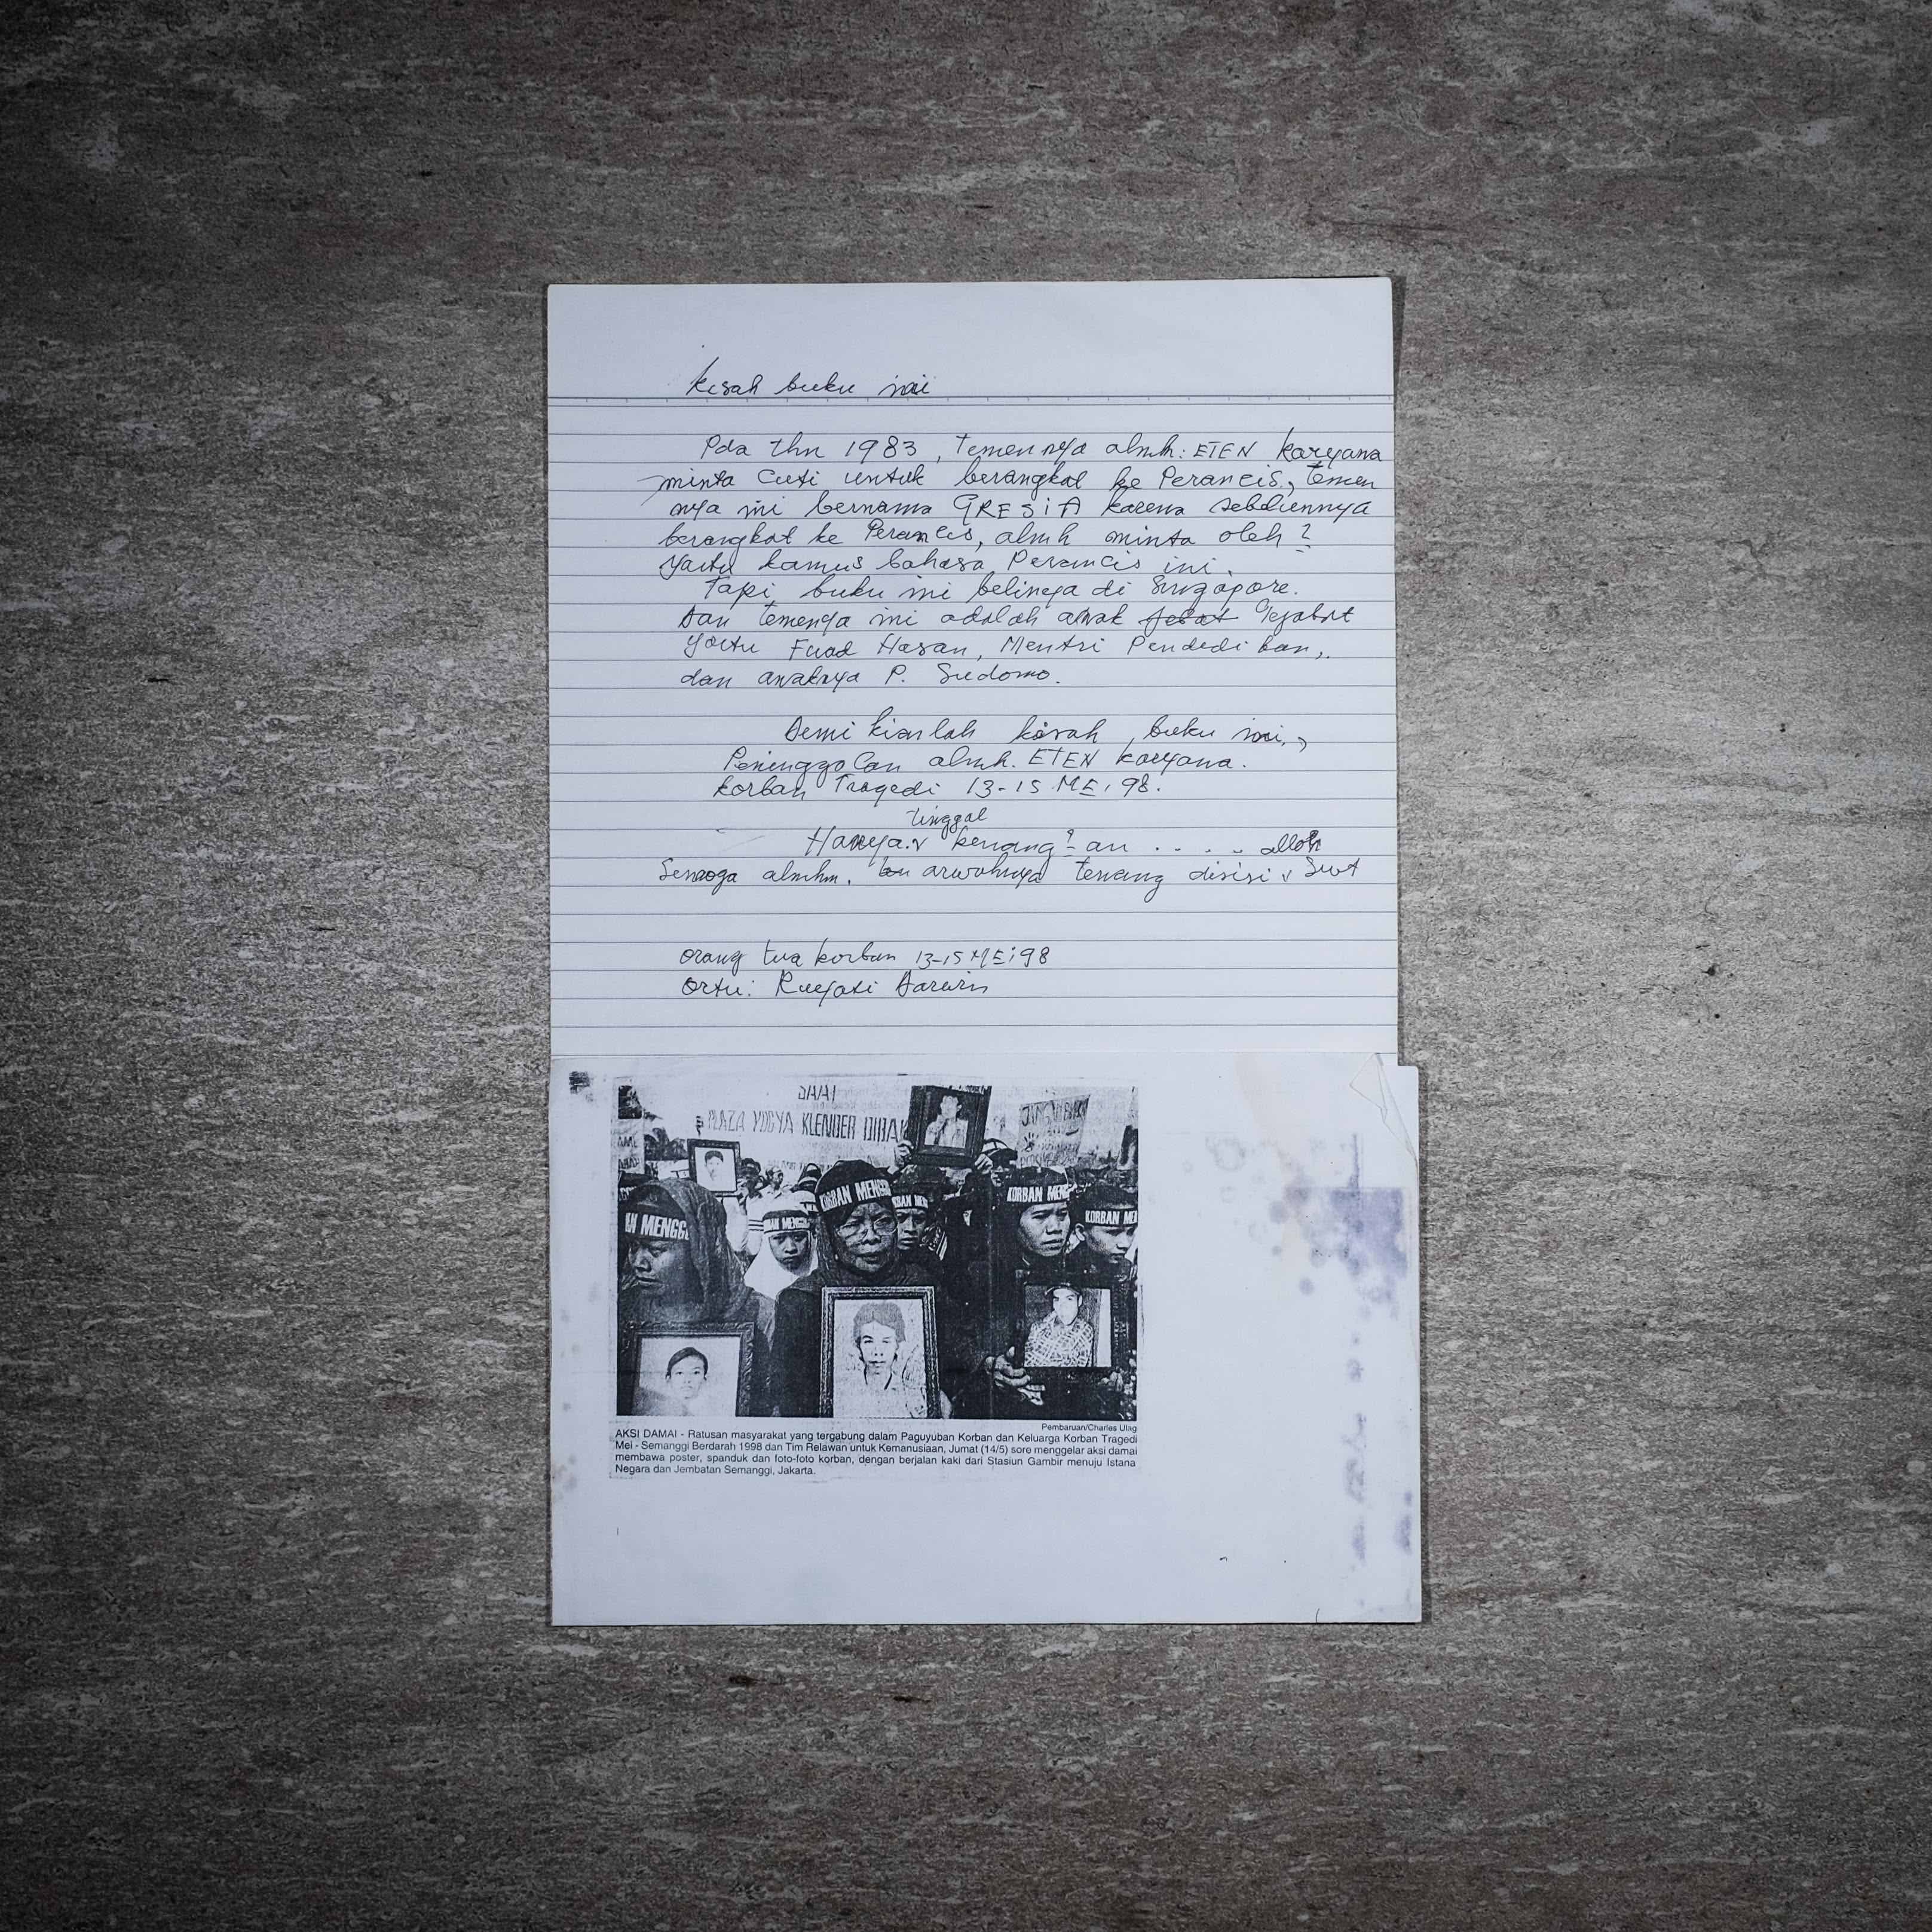 kisah buku ini
Pda thn 1983, temennya almh: ETEN Karyana
minta cuti untuk berangkat ke Perancis, temen
nya ini bernama GRESIA karena sebelumnya
berangkat ke Perancis, almh minta oleh2
yaitu kamus bahasa Perancis ini.
Tapi buku ini belinya di Singapore.
Dan temenya ini adalah anak Pejabat
yaitu Fuad Hasan, Mentri Pendedikan,
dan anaknya P. Sudomo.
Demikianlah kisah buku ini,
Peninggalan almh. ETEN Karyana.
Korban Tragedi 13-15 MEi 98.
tinggal
Hanya kenang2-an ....
alloh
Semoga almhm. arwahnya tenang disisi Swt
orang tua korban 13-15 MEi 98
ortu: Ruyati Darwin
SAAT
PLAZA YOGYA KLENDER DIBAK
KORBAN MENGG
KORBAN MENG
KORBAN MEN
AN MENGG
RBAN MEN
BAN MENG
Pembaruan/Charles Ulag
AKSI DAMAI - Ratusan masyarakat yang tergabung dalam Paguyuban Korban dan Keluarga Korban Tragedi
Mei - Semanggi Berdarah 1998 dan Tim Relawan untuk Kemanusiaan, Jumat (14/5) sore menggelar aksi damai
membawa poster, spanduk dan foto-foto korban, dengan berjalan kaki dari Stasiun Gambir menuju Istana
Negara dan Jembatan Semanggi, Jakarta.